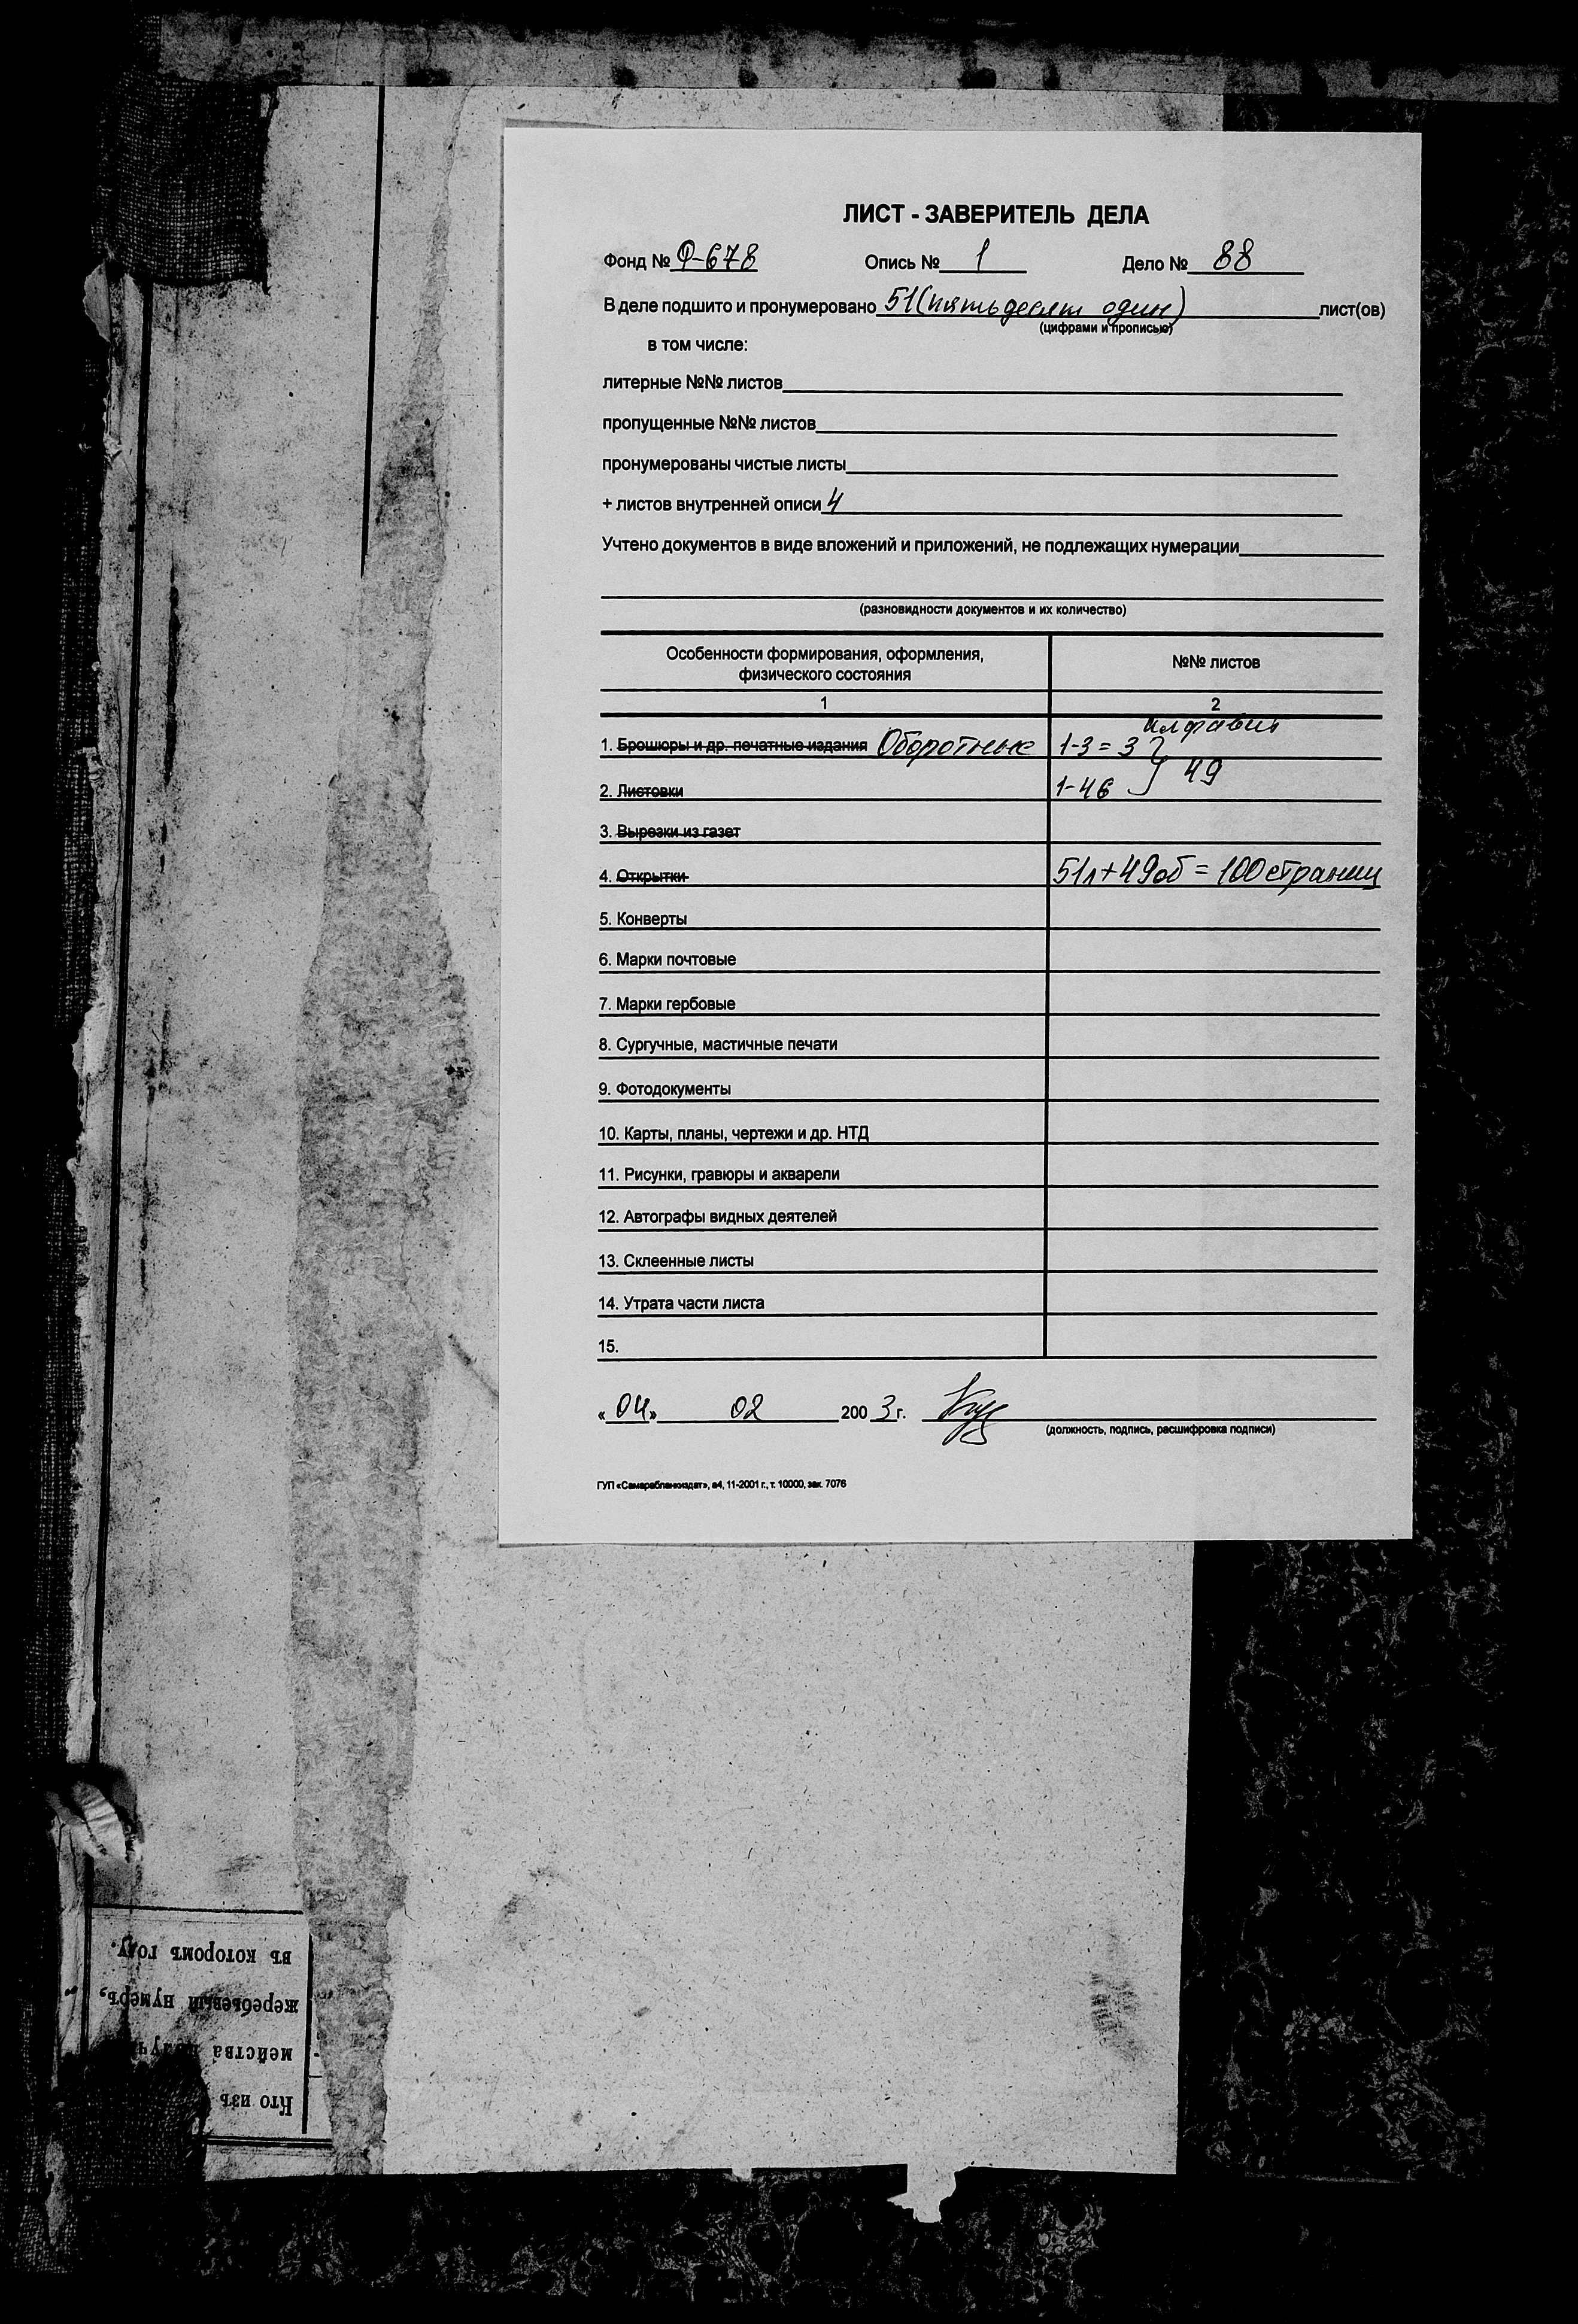 ЛИСТ - ЗАВЕРИТЕЛЬ ДЕЛА
Фонд № Ф-678 Опись № 1 Дело № 88
В деле подшито и пронумеровано 51 (пятьдесят один) лист(ов)
(цифрами и прописью)
в том числе:
литерные №№ листов
пропущенные №№ листов
пронумерованы чистые листы
+ листов внутренней описи 4
Учтено документов в виде вложений и приложений, не подлежащих нумерации
(разновидности документов и их количество)
Особенности формирования, оформления, №№ листов
физического состояния
1 2
алфавит
1. Брошюры и др. печатные издания Оборотные 1-3 = 3
2. Листовки 1-46 } 49
3. Вырезки из газет
4. Открытки 51л+49об = 100 страниц
5. Конверты
6. Марки почтовые
7. Марки гербовые
8. Сургучные, мастичные печати
9. Фотодокументы
10. Карты, планы, чертежи и др. НТД
11. Рисунки, гравюры и акварели
12. Автографы видных деятелей
13. Склеенные листы
14. Утрата части листа
15.
« 04 » 02 200 3 г.
(должность, подпись, расшифровка подписи)
ГУП «Самарабланкиздат», а4, 11-2001 г., т. 10000, зак. 7076
Кто изъ
мейства
жеребьевый нумеръ,
въ которомъ году.